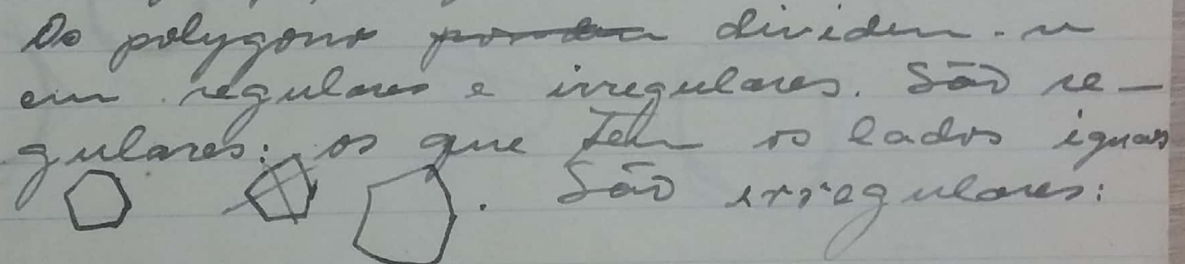 Os polygonos dividem-se
em regulares e irregulares. São re-
gulares: os que tem os lados iguaes
. São irregulares: